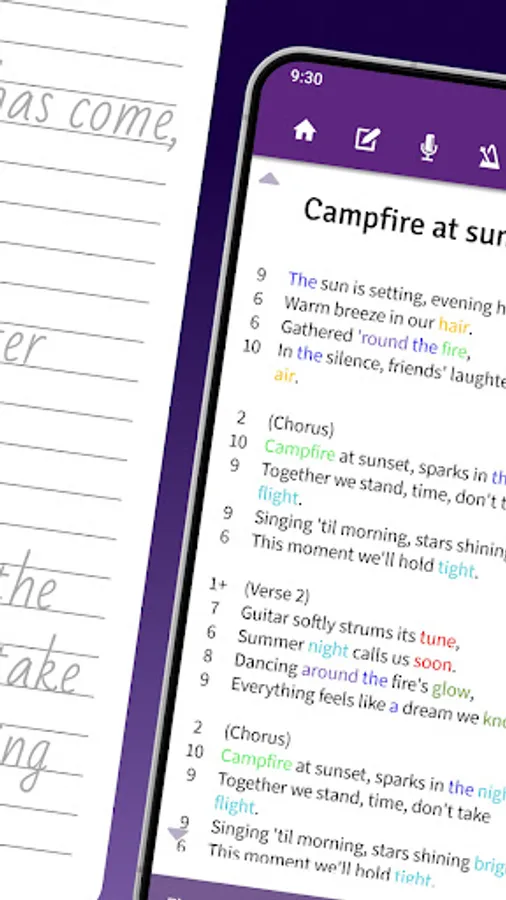 has come,
the
take
9:30
Campfire at
9 The sun is setting, evening
6 Warm breeze in our hair.
6 Gathered 'round the fire,
10 In the silence, friends'
air.
2 (Chorus)
10 Campfire at sunset, sparks in
9 Together we stand, time, don't
flight.
9 Singing 'til morning, stars shining
6 This moment we'll hold tight.
1+ (Verse 2)
7 Guitar softly strums its tune,
6 Summer night calls us soon.
8 Dancing around the fire's glow,
9 Everything feels like a dream we
2 (Chorus)
10 Campfire at sunset, sparks in the
9 Together we stand, time, don't take
flight.
9 Singing 'til morning, stars shining
6 This moment we'll hold tight.